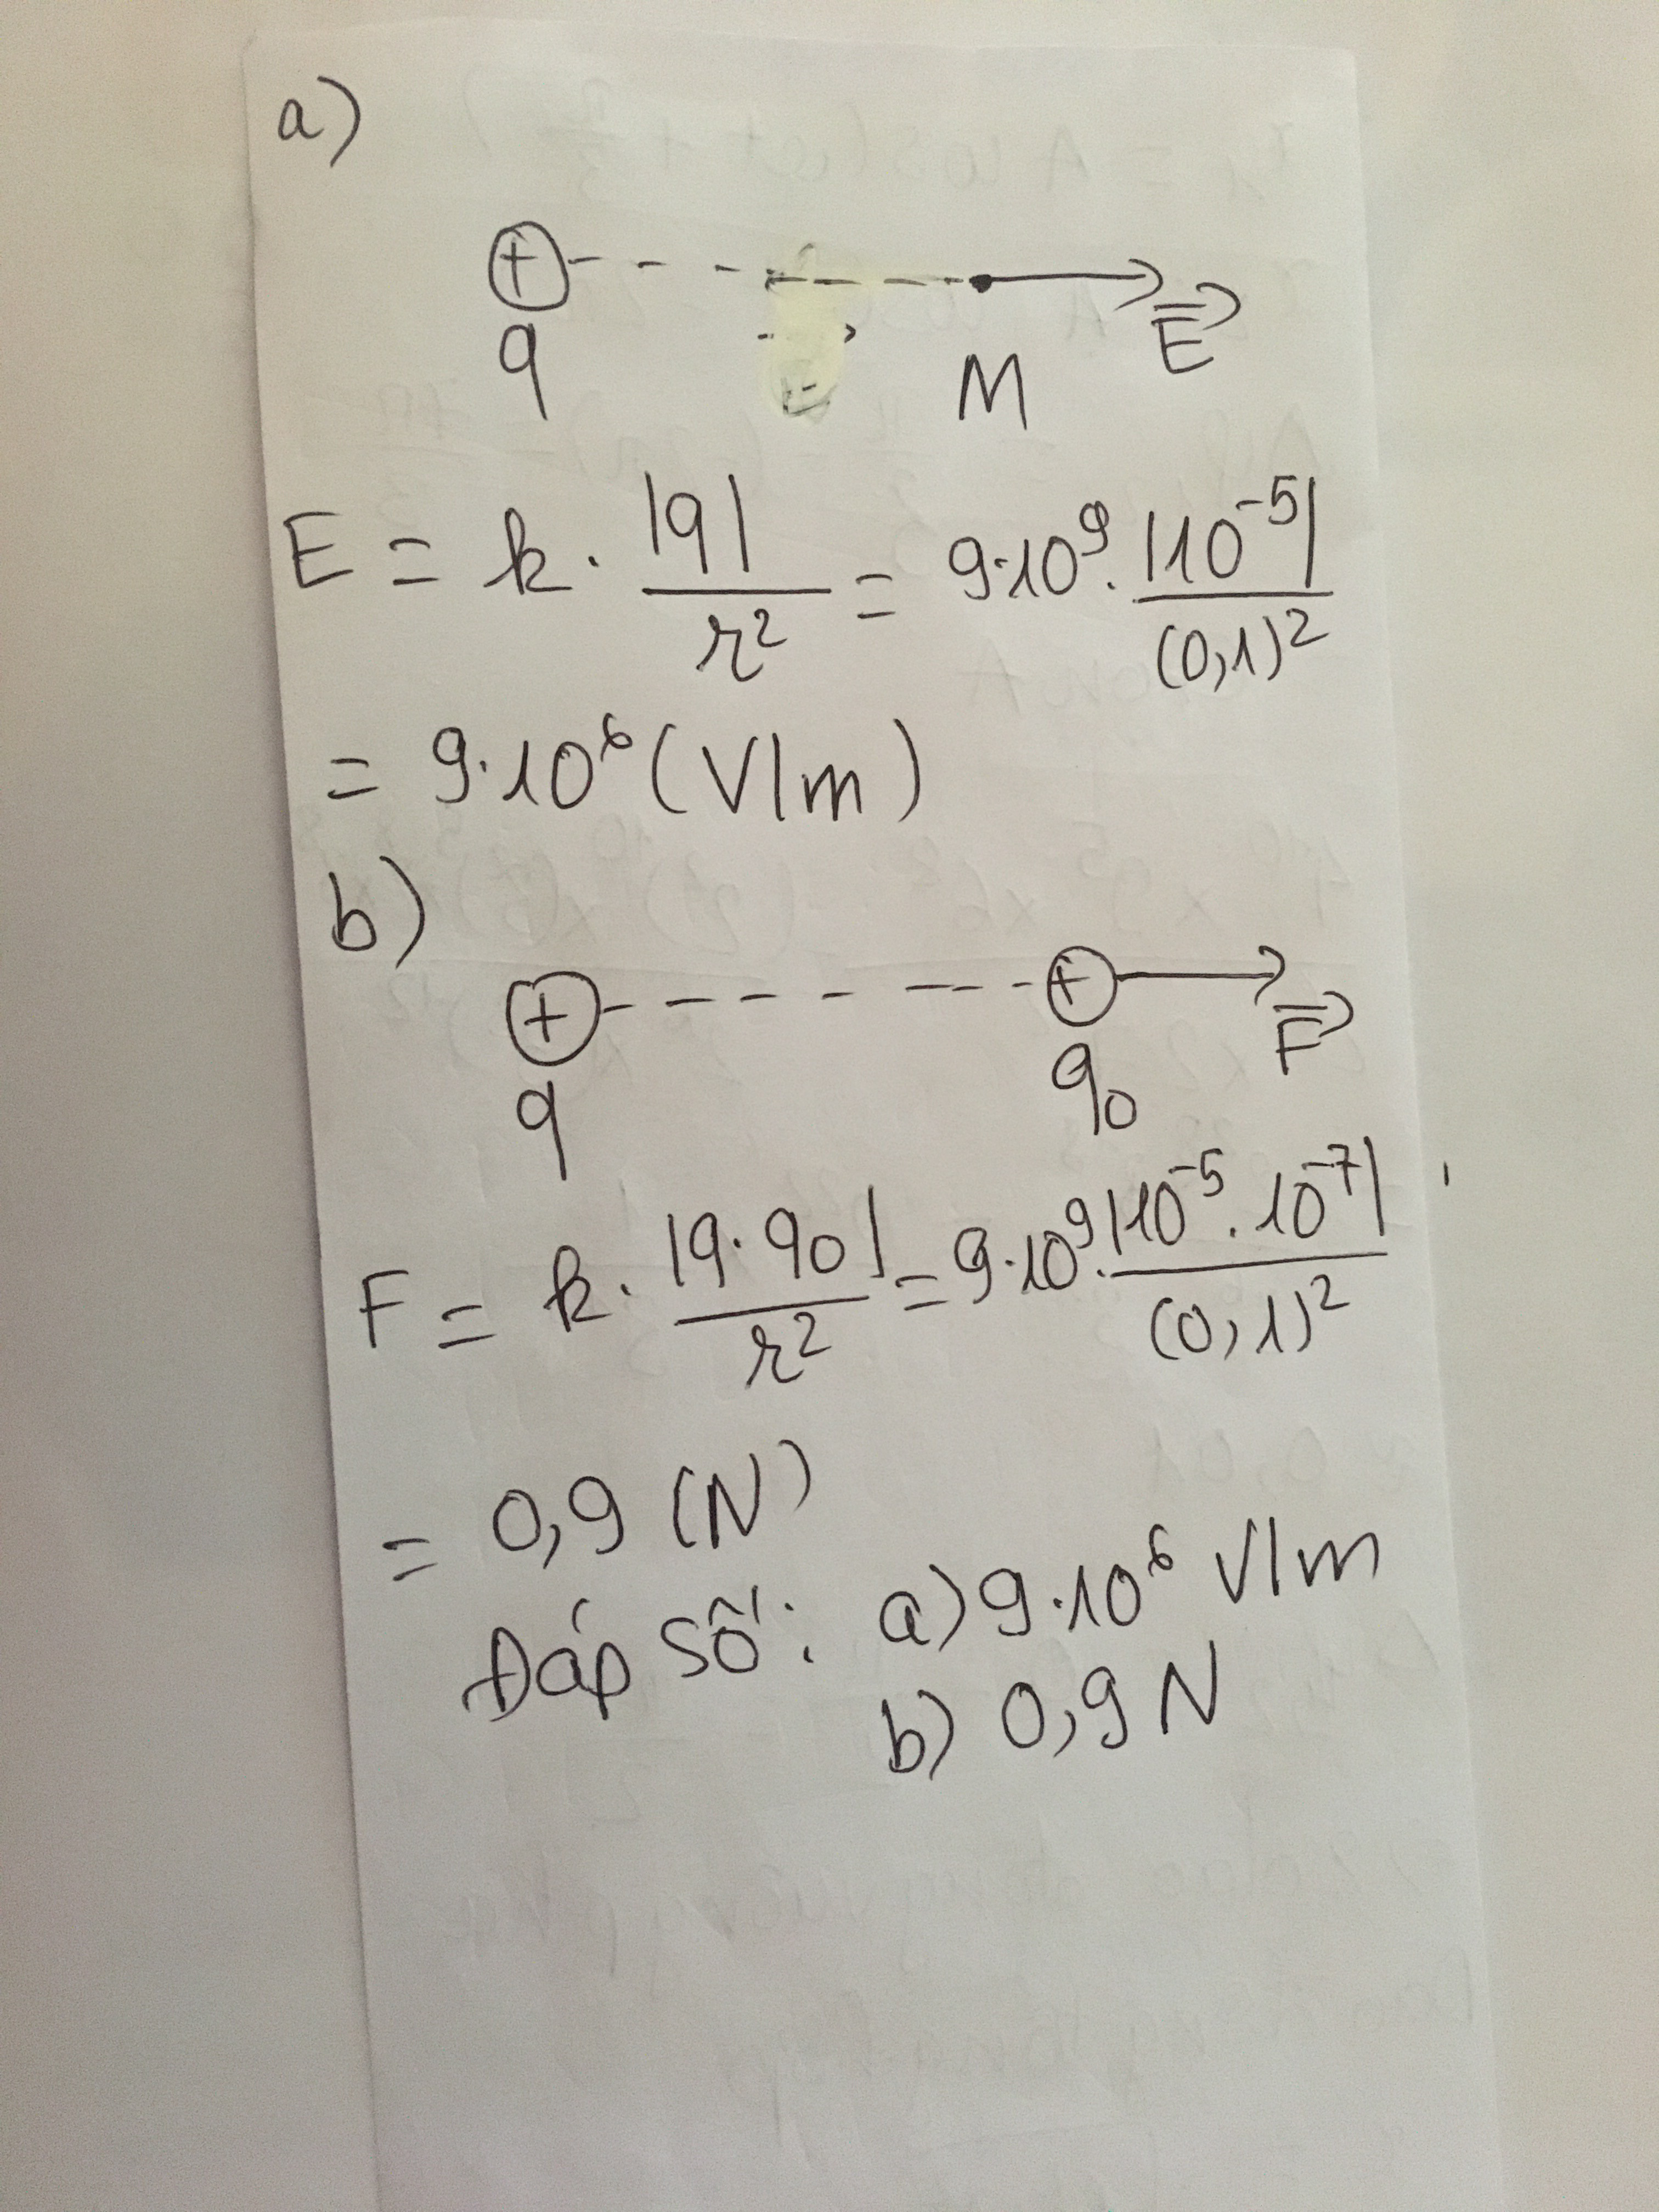 a)
+
q M E
E = k . |q| / r² = 9.10⁹ . |10⁻⁵| / (0,1)²
= 9.10⁶ (V/m)
b)
+ +
q q₀ F
F = k . |q.q₀| / r² = 9.10⁹ . |10⁻⁵.10⁻⁷| / (0,1)²
= 0,9 (N)
Đáp số: a) 9.10⁶ V/m
b) 0,9 N